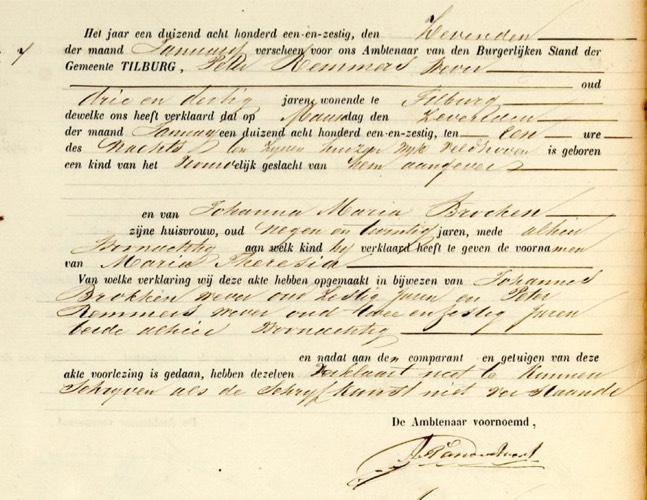 Het jaar een duizend acht honderd een-en-zestig, den Zevenden
7 der maand Januarij verscheen voor ons Ambtenaar van den Burgerlijken Stand der
Gemeente TILBURG, Peter Remmers Wever
oud
drie en dertig jaren, wonende te Tilburg
dewelke ons heeft verklaard dat op Maandag den Zevenden
der maand Januarij een duizend acht honderd een-en-zestig, ten een ure
des Nachts ten zijnen huize Wijk Veldhoven is geboren
een kind van het Vrouwelijk geslacht van hem aangever
en van Johanna Maria Brocken
zijne huisvrouw, oud negen en twintig jaren, mede alhier
Woonachtig aan welk kind hij verklaard heeft te geven de voornamen
van Maria Theresia
Van welke verklaring wij deze akte hebben opgemaakt in bijwezen van Johannes
Brokken wever oud zestig jaren en Peter
Remmers wever oud twee en sestig jaren
beide alhier Woonachtig
en nadat aan den comparant en getuigen van deze
akte voorlezing is gedaan, hebben dezelven Verklaart niet te kunnen
Schrijven als de Schrijfkunst niet verstaande
De Ambtenaar voornoemd,